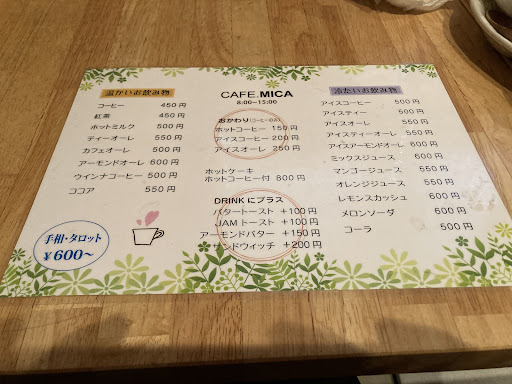 温かいお飲み物
コーヒー 450円
紅茶 450円
ホットミルク 500円
ティーオーレ 550円
カフェオーレ 500円
アーモンドオーレ 600円
ウインナコーヒー 500円
ココア 550円
手相・タロット
¥600～
CAFE.MICA
8:00~15:00
おかわり(コーヒーのみ)
ホットコーヒー 150円
アイスコーヒー 200円
アイスオーレ 250円
ホットケーキ
ホットコーヒー付 800円
DRINK にプラス
バタートースト +100円
JAMトースト +100円
アーモンドバター +150円
サンドウィッチ +200円
冷たいお飲み物
アイスコーヒー 500円
アイスティー 500円
アイスオーレ 550円
アイスティーオーレ 550円
アイスアーモンドオーレ 600円
ミックスジュース 600円
マンゴージュース 550円
オレンジジュース 550円
レモンスカッシュ 600円
メロンソーダ 600円
コーラ 500円